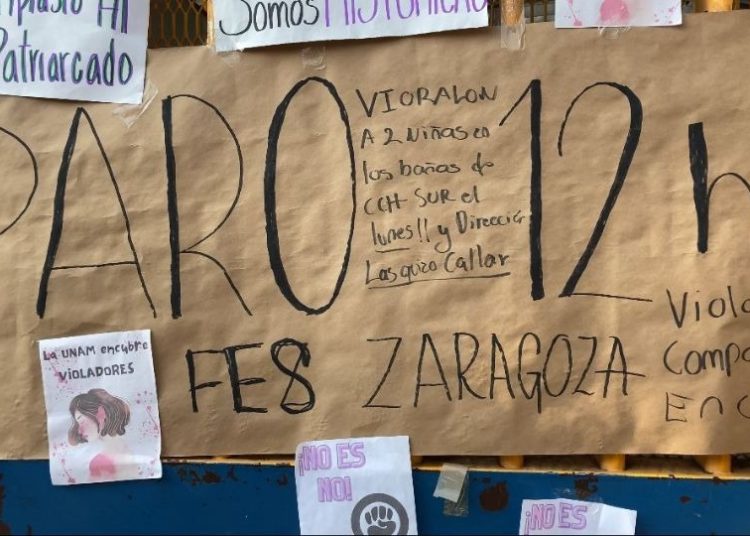 Patriarcado
Somos
PARO 12 h
VIORALON
A 2 Niñas en
los bañas de
CCH SUR el
lunes!! y Dirección
Las quzo Callar
FES ZARAGOZA
La UNAM encubre
VIOLADORES
¡NO ES
NO!
¡NO ES